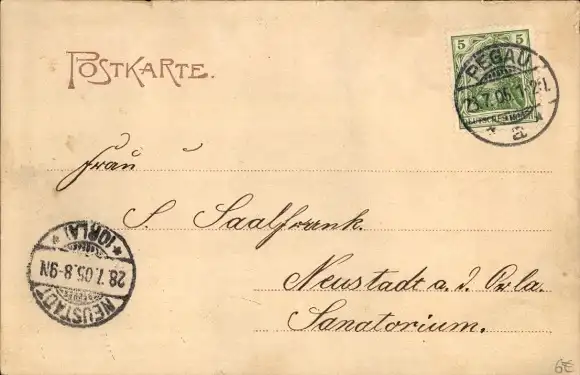 POSTKARTE.
5 5
DEUTSCHES REICH
PEGAU
7.05
a
Frau
S. Saalfrank.
Neustadt a. d. Orla.
Sanatorium.
NEUSTADT
28.7.05.8-9N
*(ORLA)*